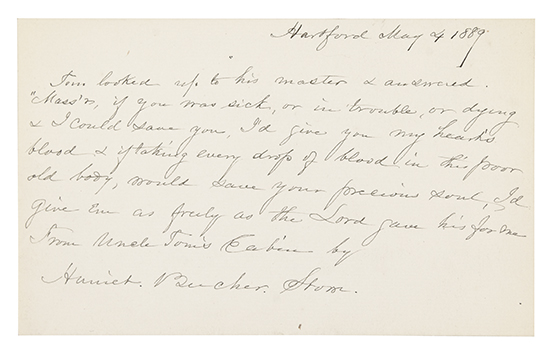 Hartford May 4 1889
Tom looked up to his master & answered.
"Mass'r, if you was sick, or in trouble, or dying
& I could save you, I'd give you my heart's
blood & if taking every drop of blood in this poor
old body, would save your precious soul, I'd
give em as freely as the Lord gave his for me
From Uncle Tom's Cabin by
Harriet. Beecher. Stowe.